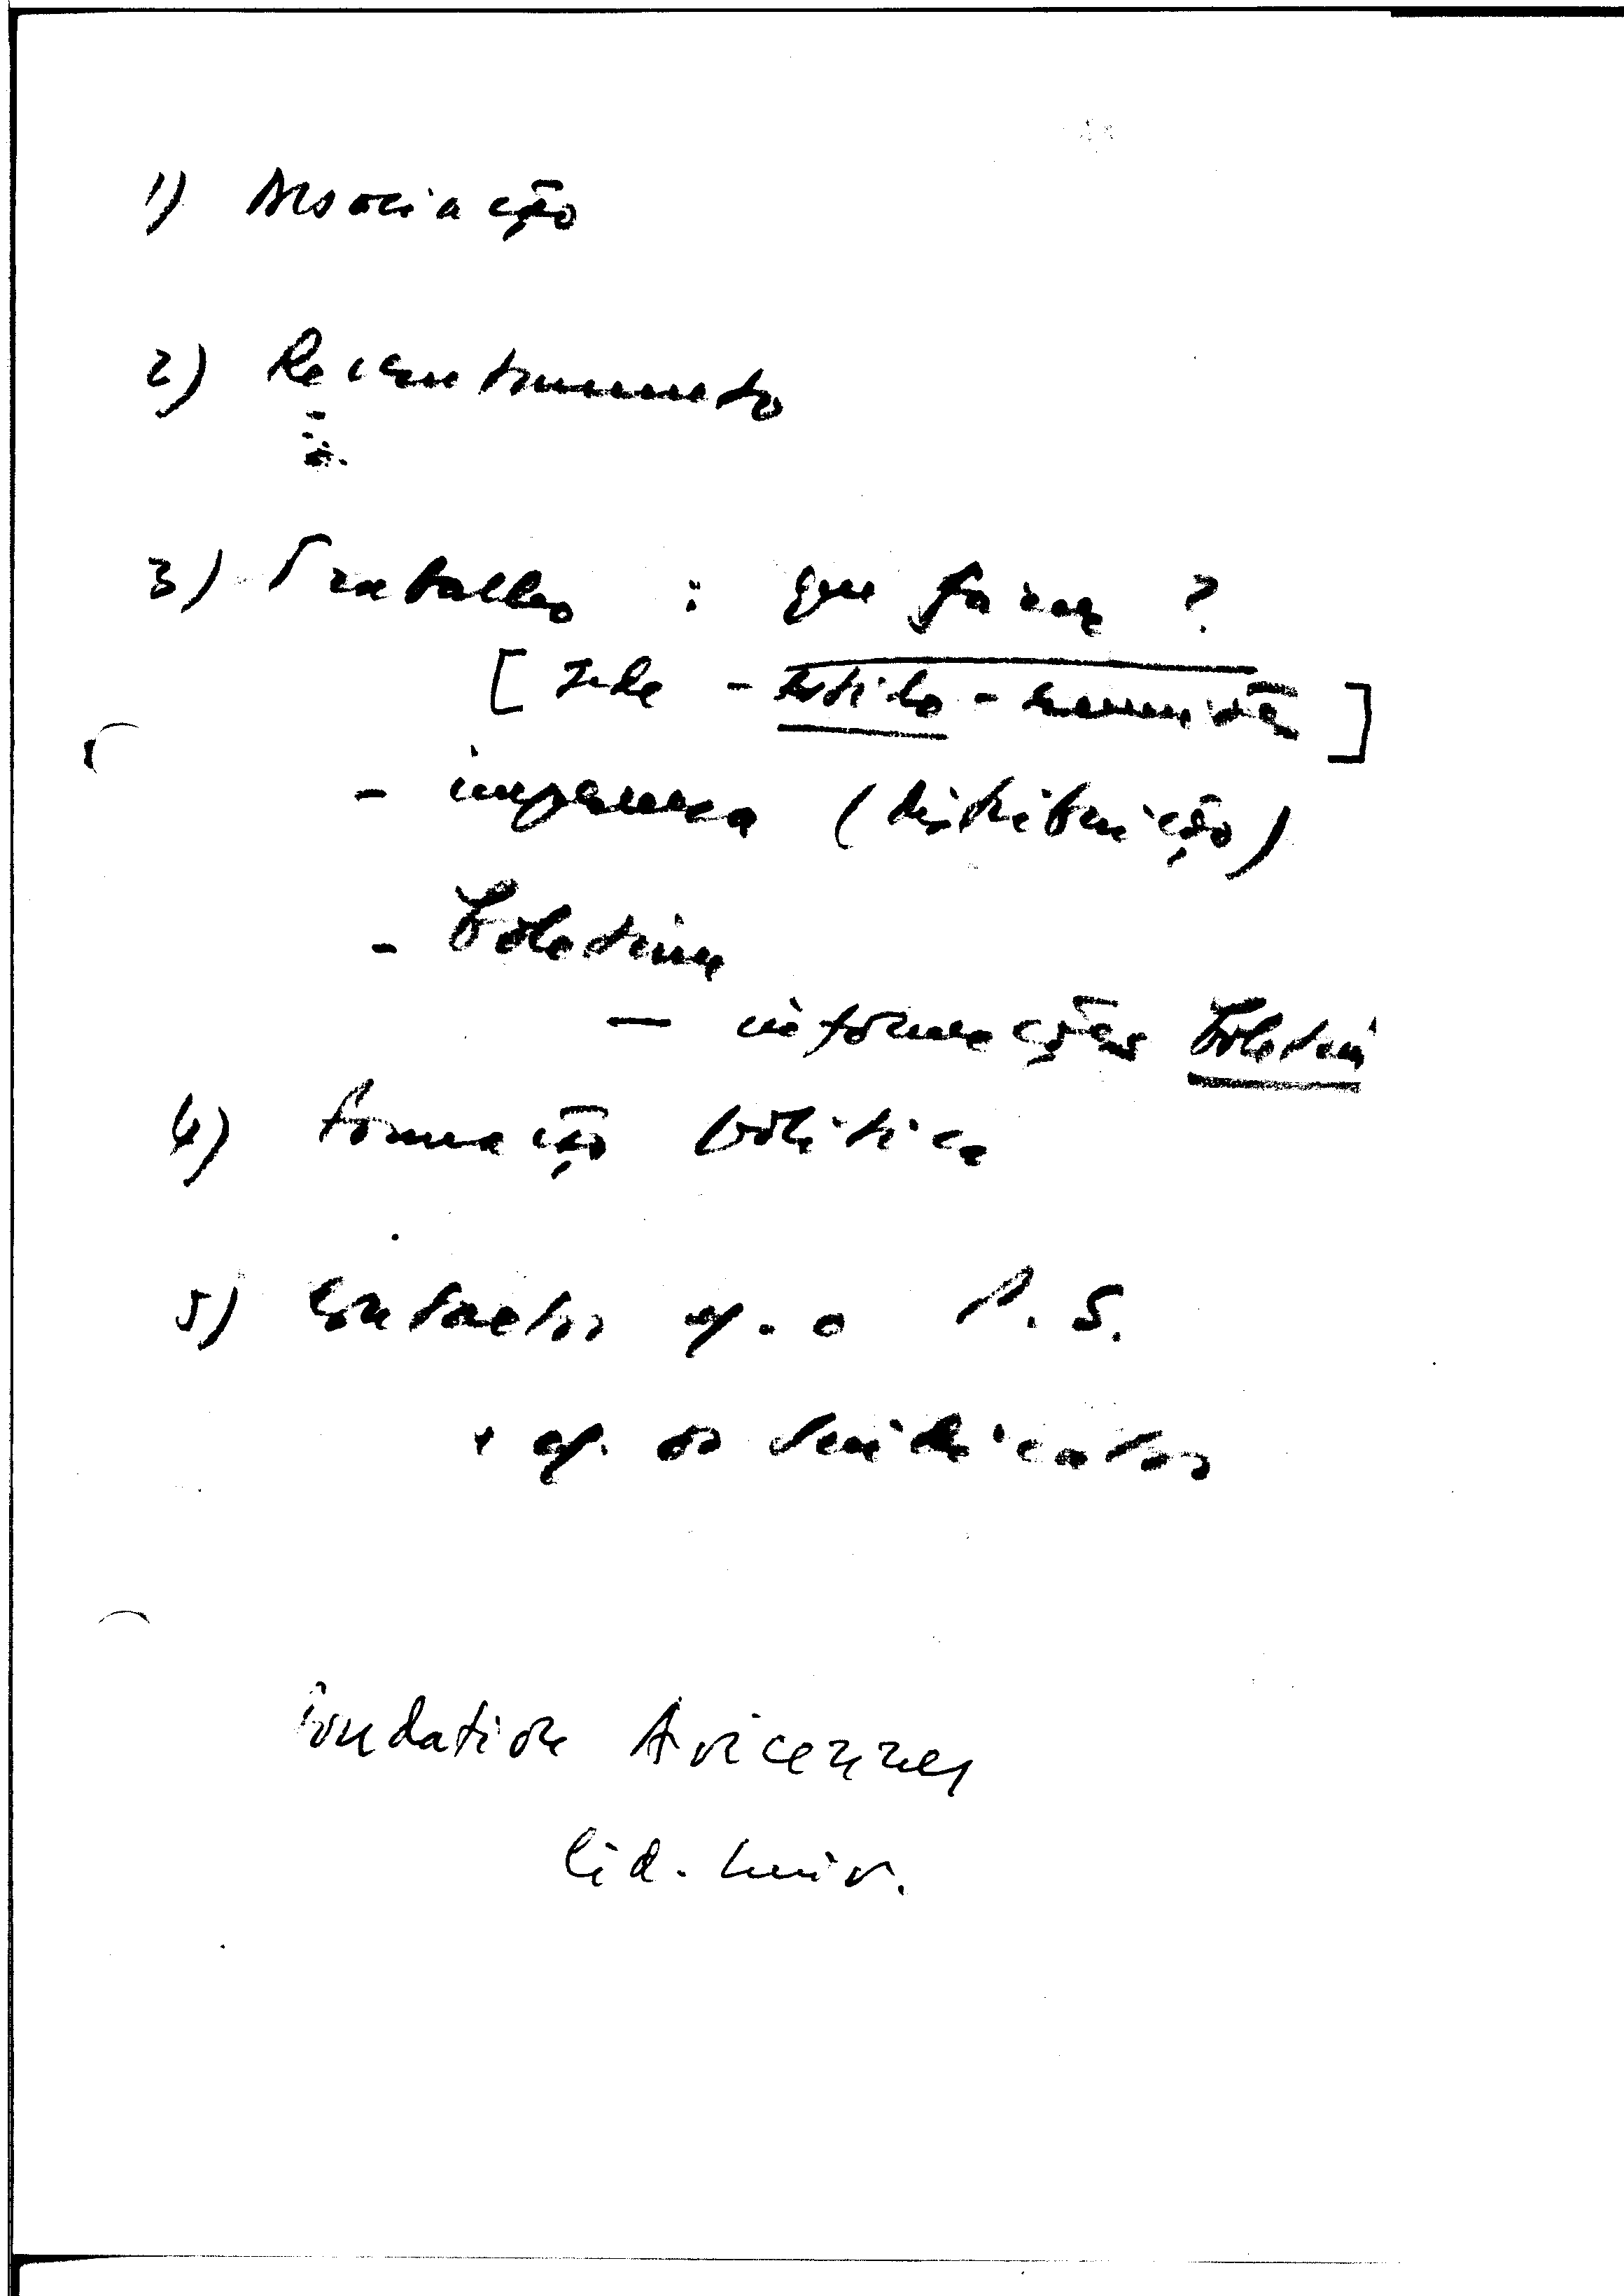 1) Associação
2) Recrutamento
3) Trabalho : que fazer ?
[ sede - estilo - reuniões ]
- imprensa (distribuição)
- boletim
— informações boletim
4) formação política
5) Contactos c/. o P. S.
+ c/. os sindicatos
Fondation Avicennes
Cid. Univ.